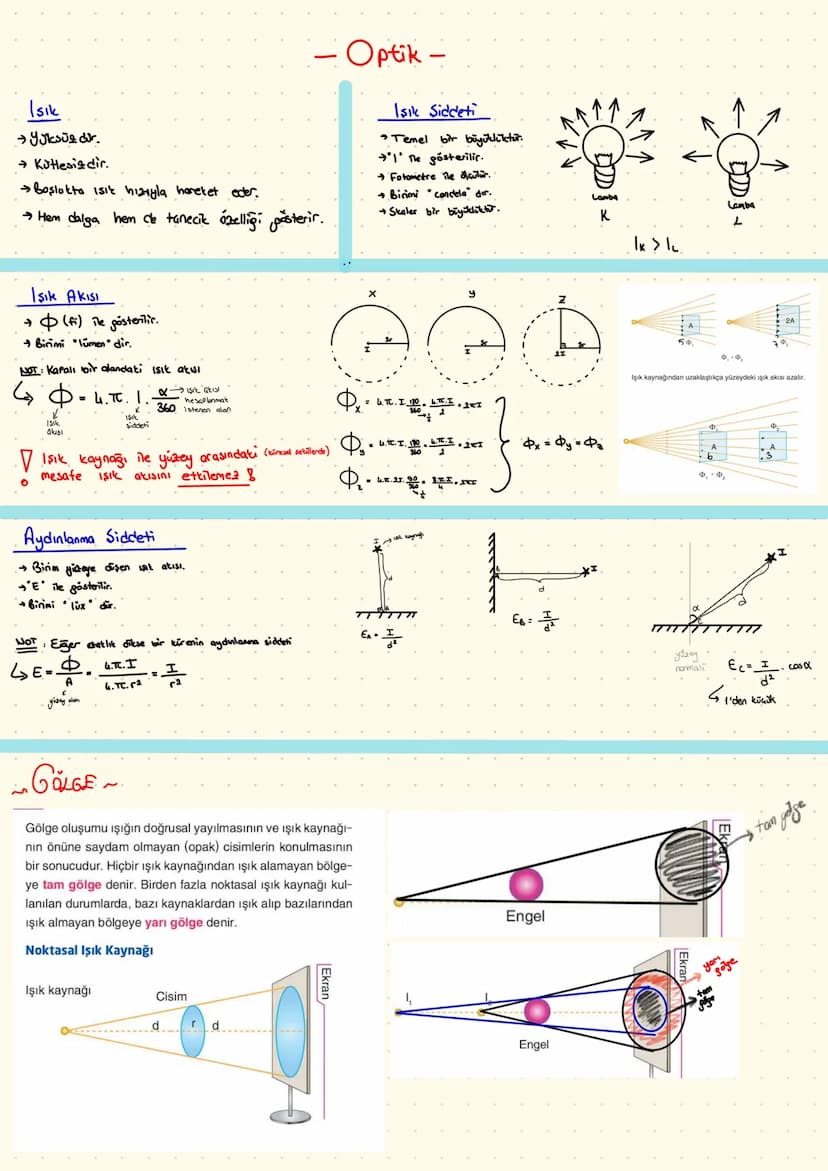 - Optik -
Işık
→ Yüksüzdür.
→ Kütlesizdir.
→ Boşlukta ışık hızıyla hareket eder.
→ Hem dalga hem de tanecik özelliği gösterir.
Işık Şiddeti
→ Temel bir büyüklüktür.
→ "I" ile gösterilir.
→ Fotometre ile ölçülür.
→ Birimi "candela" dır.
→ Skaler bir büyüklüktür.
Lamba
K
Lamba
L
IK > IL
Işık Akısı
→ Φ (fi) ile gösterilir.
→ Birimi "lümen" dir.
NOT: Kapalı bir alandaki ışık akısı
Φ = 4.π. I . α/360
→ ışık akısı
hesaplanmak
istenen alan
ışık
akısı
ışık
şiddeti
! Işık kaynağı ile yüzey arasındaki (küresel şekillerde)
mesafe ışık akısını etkilemez !
x
I
y
I
z
2I
Φx = 4.π.I. 180/360 = 4.π.I/2 = 2πI
Φy = 4.π.I. 180/360 = 4.π.I/2 = 2πI
Φz = 4.π.2I. 90/360 = 8π.I/4 = 2πI
Φx = Φy = Φz
A
5 Φ1
2A
7 Φ2
Φ1 - Φ2
Işık kaynağından uzaklaştıkça yüzeydeki ışık akısı azalır.
Φ1
A
6
Φ2
A
3
Φ1 - Φ2
Aydınlanma Şiddeti
→ Birim yüzeye düşen ışık akısı.
→ "E" ile gösterilir.
→ Birimi "lüx" dür.
NOT: Eğer dikse bir kürenin aydınlanma şiddeti
E = Φ/A = 4.π.I/4.π.r² = I/r²
yüzey alanı
I → ışık kaynağı
d
A
EA = I/d²
B
I
d
EB = I/d²
I
α
d
C
yüzey
normali
EC = I/d² . cosα
1'den küçük
~ GÖLGE ~
Gölge oluşumu ışığın doğrusal yayılmasının ve ışık kaynağı-
nın önüne saydam olmayan (opak) cisimlerin konulmasının
bir sonucudur. Hiçbir ışık kaynağından ışık alamayan bölge-
ye tam gölge denir. Birden fazla noktasal ışık kaynağı kul-
lanılan durumlarda, bazı kaynaklardan ışık alıp bazılarından
ışık almayan bölgeye yarı gölge denir.
Noktasal Işık Kaynağı
Işık kaynağı
Cisim
d
r
d
Ekran
Engel
Ekran
tam gölge
I1
I2
Engel
Ekran
yarı
gölge
tam
gölge